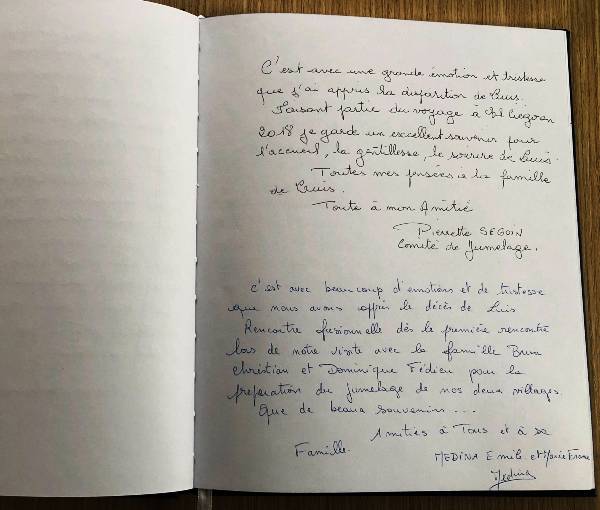 C'est avec une grande émotion et tristesse
que j'ai appris la disparition de Luis.
Faisant partie du voyage à
2018 je garde un excellent souvenir pour
l'accueil, la gentillesse, le sourire de Luis.
Toutes mes pensées à la famille
de Luis.
Toute à mon Amitié
Pierrette SEGOIN
Comité de Jumelage.
C'est avec beaucoup d'émotions et de tristesse
que nous avons appris le décès de Luis
Rencontre fusionnelle dès la première rencontre
lors de notre visite avec la famille Brun
Christian et Dominique Fédieu pour la
préparation du jumelage de nos deux villages.
Que de beaux souvenirs ...
Amitiés à Tous et à sa
Famille.
MEDINA Emile et Marie France
Medina